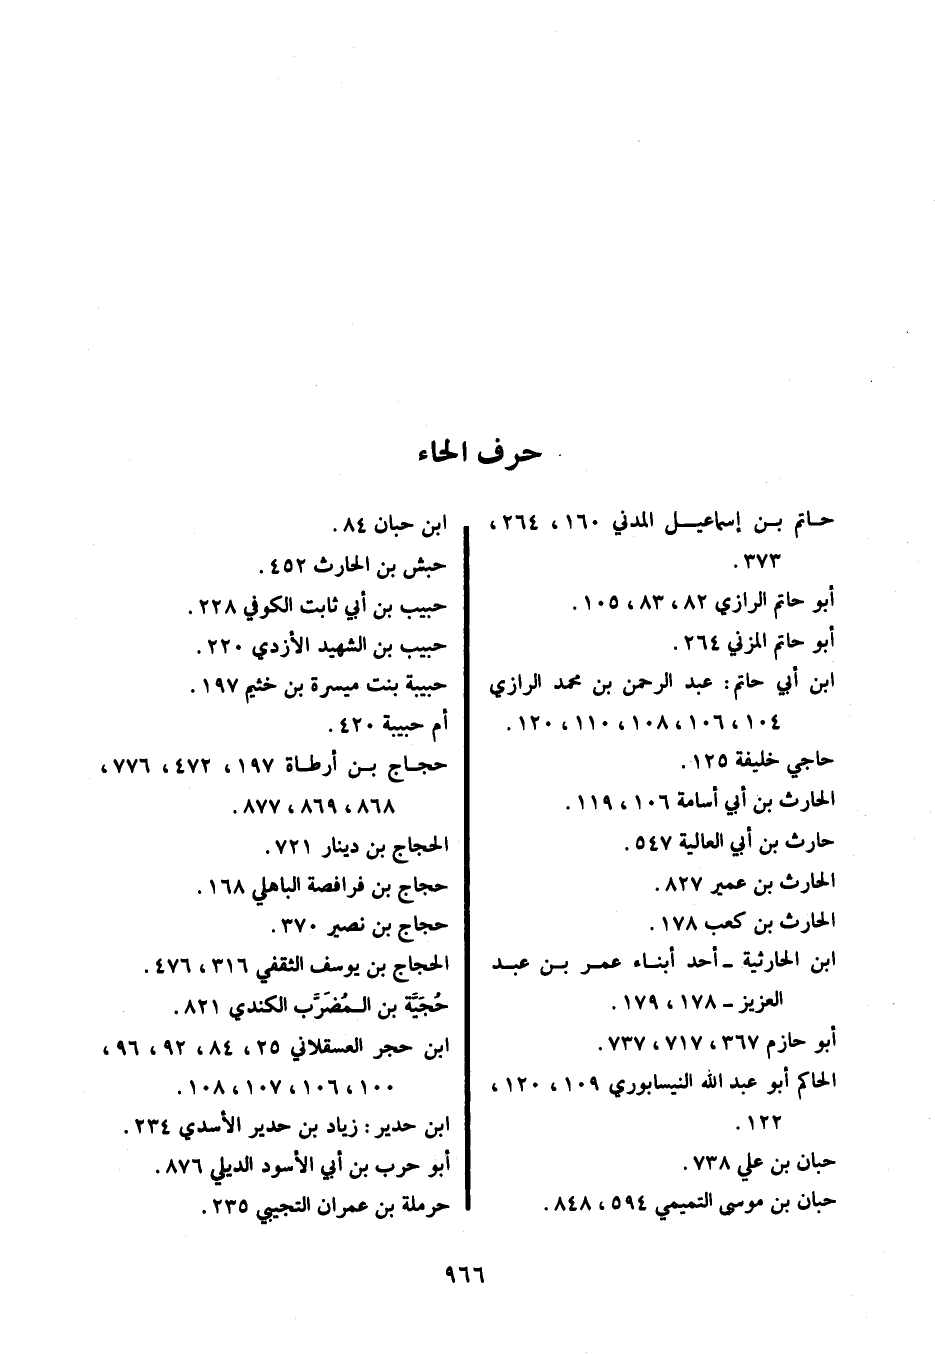 حرف الحاء
حاتم بن إسماعيل المدني ١٦٠ ، ٢٦٤ ،
٣٧٣ .
أبو حاتم الرازي ٨٢ ، ٨٣ ، ١٠٥ .
أبو حاتم المزني ٢٦٤ .
ابن أبي حاتم : عبد الرحمن بن محمد الرازي
١٠٤ ، ١٠٦ ، ١٠٨ ، ١١٠ ، ١٢٠ .
حاجي خليفة ١٢٥ .
الحارث بن أبي أسامة ١٠٦ ، ١١٩ .
حارث بن أبي العالية ٥٤٧ .
الحارث بن عمير ٨٢٧ .
الحارث بن كعب ١٧٨ .
ابن الحارثية ـ أحد أبناء عمر بن عبد
العزيز ـ ١٧٨ ، ١٧٩ .
أبو حازم ٣٦٧ ، ٧١٧ ، ٧٣٧ .
الحاكم أبو عبد الله النيسابوري ١٠٩ ، ١٢٠ ،
١٢٢ .
حبان بن علي ٧٣٨ .
حبان بن موسى التميمي ٥٩٤ ، ٨٤٨ .
ابن حبان ٨٤ .
حبش بن الحارث ٤٥٢ .
حبيب بن أبي ثابت الكوفي ٢٢٨ .
حبيب بن الشهيد الأزدي ٢٢٠ .
حبيبة بنت ميسرة بن خثيم ١٩٧ .
أم حبيبة ٤٢٠ .
حجاج بن أرطاة ١٩٧ ، ٤٧٢ ، ٧٧٦ ،
٨٦٨ ، ٨٦٩ ، ٨٧٧ .
الحجاج بن دينار ٧٢١ .
حجاج بن فرافصة الباهلي ١٦٨ .
حجاج بن نصير ٣٧٠ .
الحجاج بن يوسف الثقفي ٣١٦ ، ٤٧٦ .
حُجَيَّة بن المُضَرَّب الكندي ٨٢١ .
ابن حجر العسقلاني ٢٥ ، ٨٤ ، ٩٢ ، ٩٦ ،
١٠٠ ، ١٠٦ ، ١٠٧ ، ١٠٨ .
ابن حدير : زياد بن حدير الأسدي ٢٣٤ .
أبو حرب بن أبي الأسود الديلي ٨٧٦ .
حرملة بن عمران التجيبي ٢٣٥ .
٩٦٦